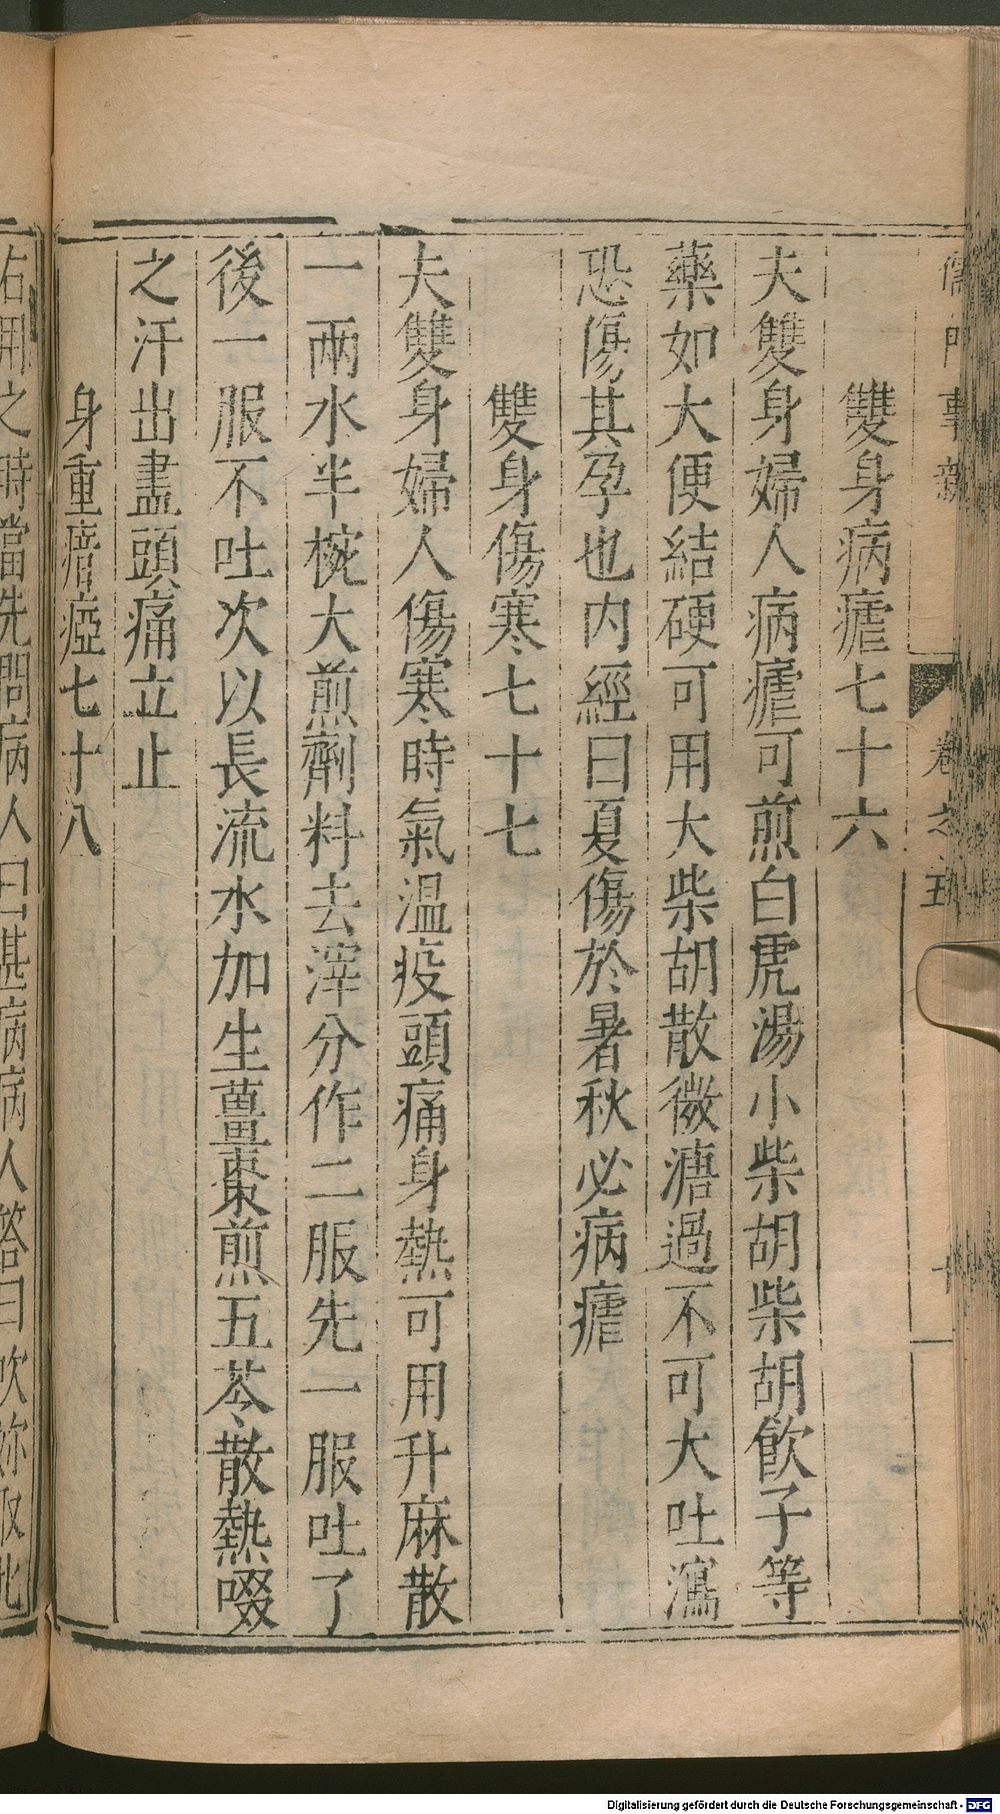 儒門事親 卷之五 十
雙身病瘧七十六
夫雙身婦人病瘧可煎白虎湯小柴胡柴胡飲子等
藥如大便結硬可用大柴胡散微溏過不可大吐瀉
恐傷其孕也内經曰夏傷於暑秋必病瘧
雙身傷寒七十七
夫雙身婦人傷寒時氣温疫頭痛身熱可用升麻散
一兩水半椀大煎劑料去滓分作二服先一服吐了
後一服不吐次以長流水加生薑棗煎五苓散熱啜
之汗出盡頭痛立止
身重瘖瘂七十八
右用之時當先問病人曰甚病病人答曰吹妳取北
Digitalisierung gefördert durch die Deutsche Forschungsgemeinschaft - DFG